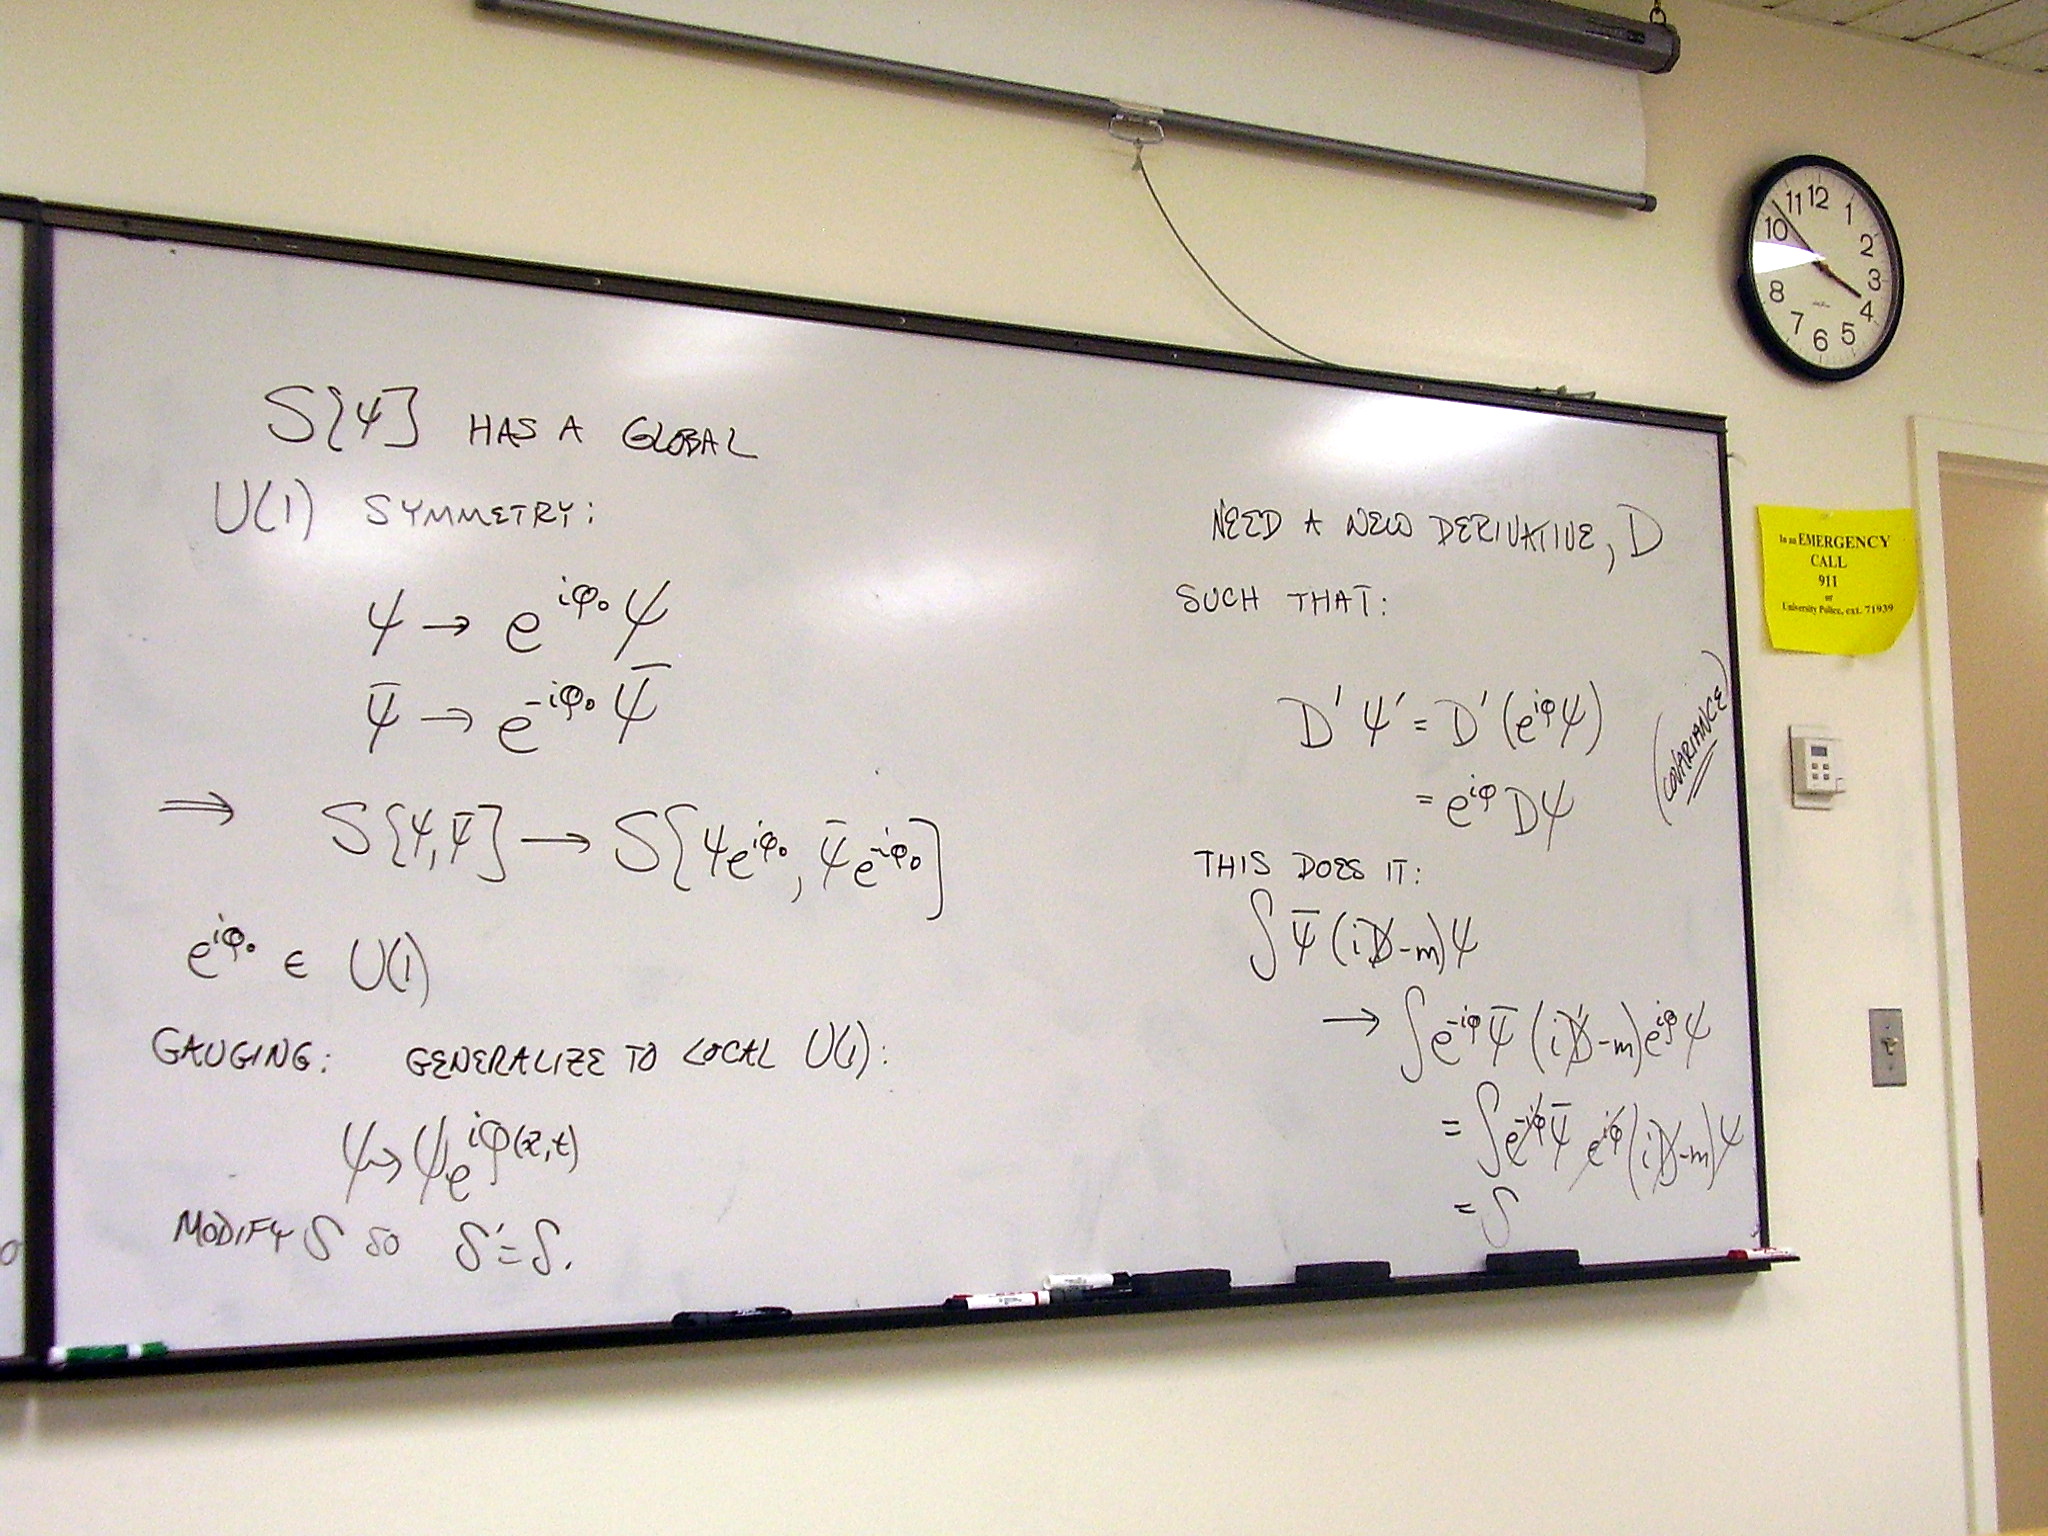 S[ψ] HAS A GLOBAL
U(1) SYMMETRY:
ψ → e^{iφ₀} ψ
ψ̄ → e^{-iφ₀} ψ̄
⇒ S[ψ, ψ̄] → S[ψe^{iφ₀}, ψ̄e^{-iφ₀}]
e^{iφ₀} ∈ U(1)
GAUGING: GENERALIZE TO LOCAL U(1):
ψ → ψe^{iφ(x,t)}
MODIFY S SO S' = S.
NEED A NEW DERIVATIVE, D
SUCH THAT:
D'ψ' = D'(e^{iφ}ψ)
= e^{iφ}Dψ
(COVARIANCE)
THIS DOES IT:
∫ψ̄(iD̸-m)ψ
→ ∫e^{-iφ}ψ̄(iD̸'-m)e^{iφ}ψ
= ∫e^{-iφ}ψ̄ e^{iφ}(iD̸-m)ψ
= S
12
1
2
3
4
5
6
7
8
10
11
In an EMERGENCY
CALL
911
or
University Police, ext. 71939